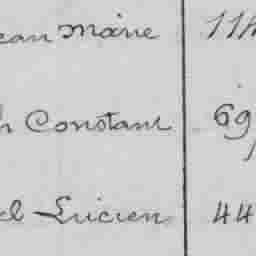 ean Marie 114
h Constant 69
el Lucien 44